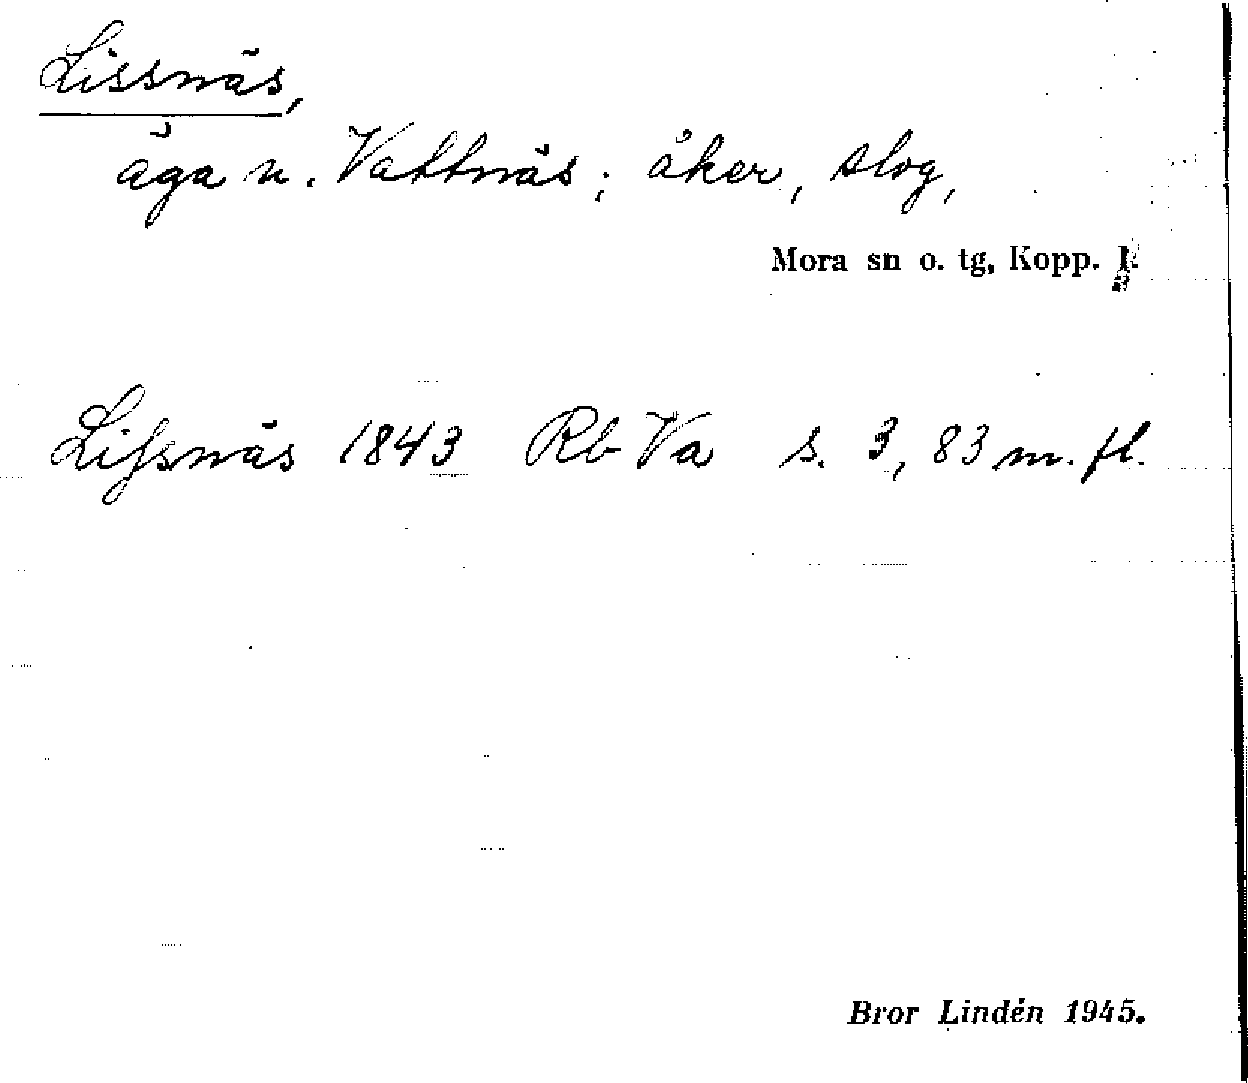 Lissnäs,
äga n. Vattnäs; åker, slog,
Mora sn o. tg, Kopp. l.
Liſsnäs 1843 Rb Va s. 3, 83 m. fl.
Bror Lindén 1945.